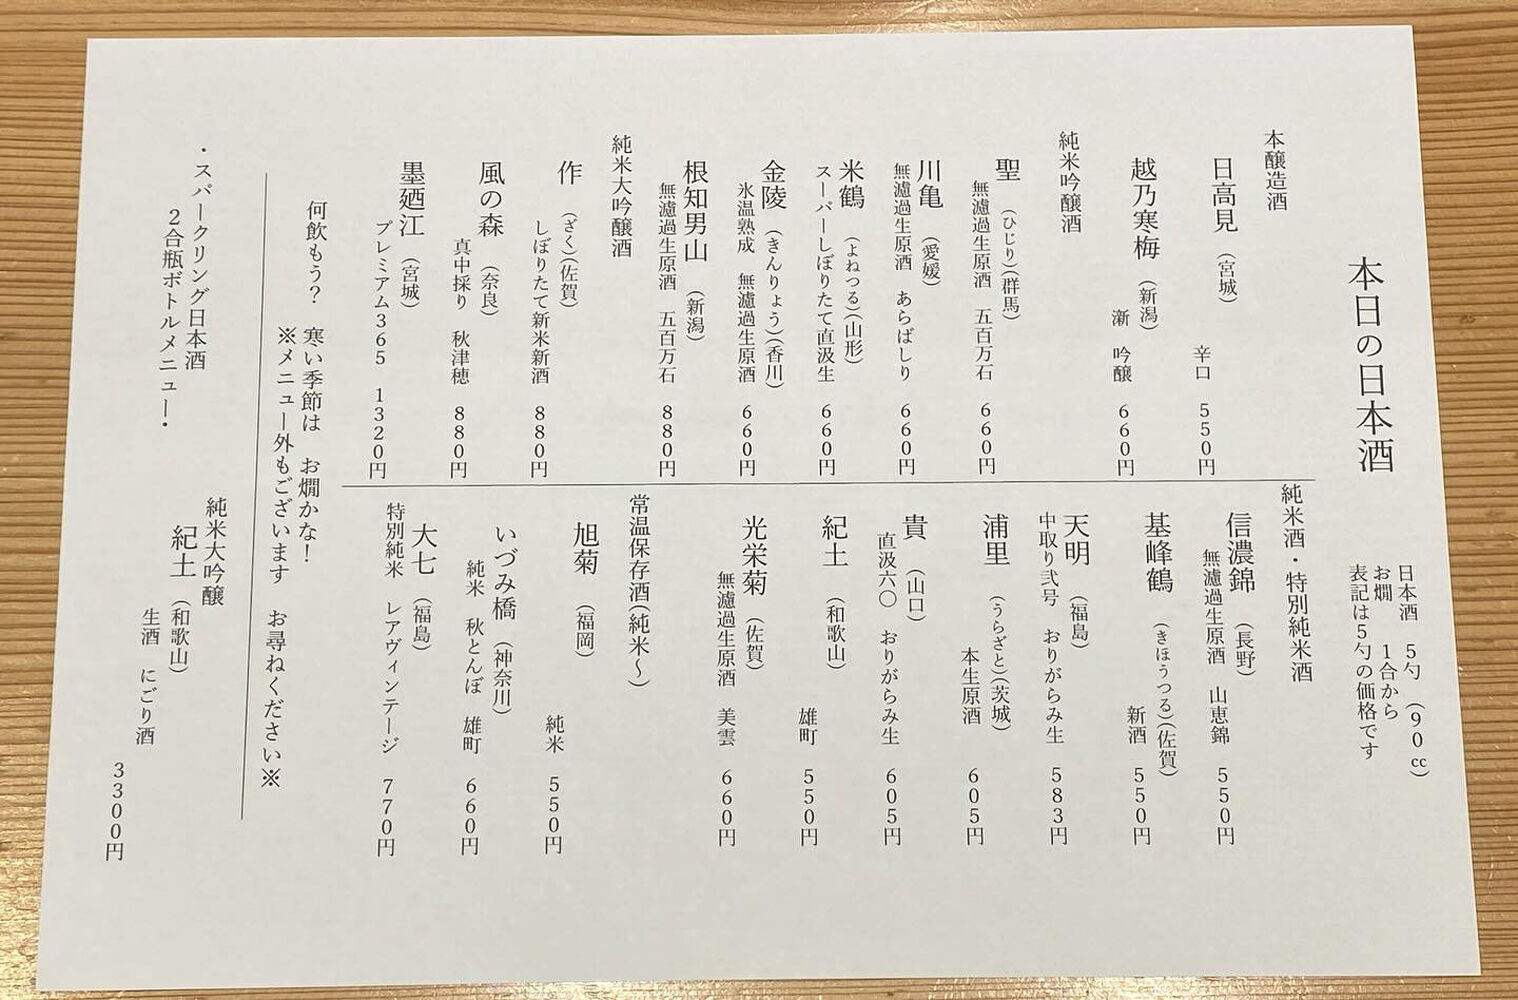 本日の日本酒
日本酒　５勺　（９０㏄）
お燗　１合から
表記は５勺の価格です
本醸造酒
日高見　（宮城）
辛口　５５０円
越乃寒梅　（新潟）
漸　吟醸　６６０円
純米吟醸酒
聖　（ひじり）（群馬）
無濾過生原酒　五百万石　６６０円
川亀　（愛媛）
無濾過生原酒　あらばしり　６６０円
米鶴　（よねつる）（山形）
スーパーしぼりたて直汲生　６６０円
金陵　（きんりょう）（香川）
氷温熟成　無濾過生原酒　６６０円
根知男山　（新潟）
無濾過生原酒　五百万石　８８０円
純米大吟醸酒
作　（ざく）（佐賀）
しぼりたて新米新酒　８８０円
風の森　（奈良）
真中採り　秋津穂　８８０円
墨廼江　（宮城）
プレミアム３６５　１３２０円
純米酒・特別純米酒
信濃錦　（長野）
無濾過生原酒　山恵錦　５５０円
基峰鶴　（きほうつる）（佐賀）
新酒　５５０円
天明　（福島）
中取り弐号　おりがらみ生　５８３円
浦里　（うらざと）（茨城）
本生原酒　６０５円
貴　（山口）
直汲六〇　おりがらみ生　６０５円
紀土　（和歌山）
雄町　５５０円
光栄菊　（佐賀）
無濾過生原酒　美雲　６６０円
常温保存酒（純米〜）
旭菊　（福岡）
純米　５５０円
いづみ橋　（神奈川）
純米　秋とんぼ　雄町　６６０円
大七　（福島）
特別純米　レアヴィンテージ　７７０円
何飲もう？　寒い季節は　お燗かな！
※メニュー外もございます　お尋ねください※
・スパークリング日本酒
２合瓶ボトルメニュー・
純米大吟醸
紀土　（和歌山）
生酒　にごり酒
３３００円